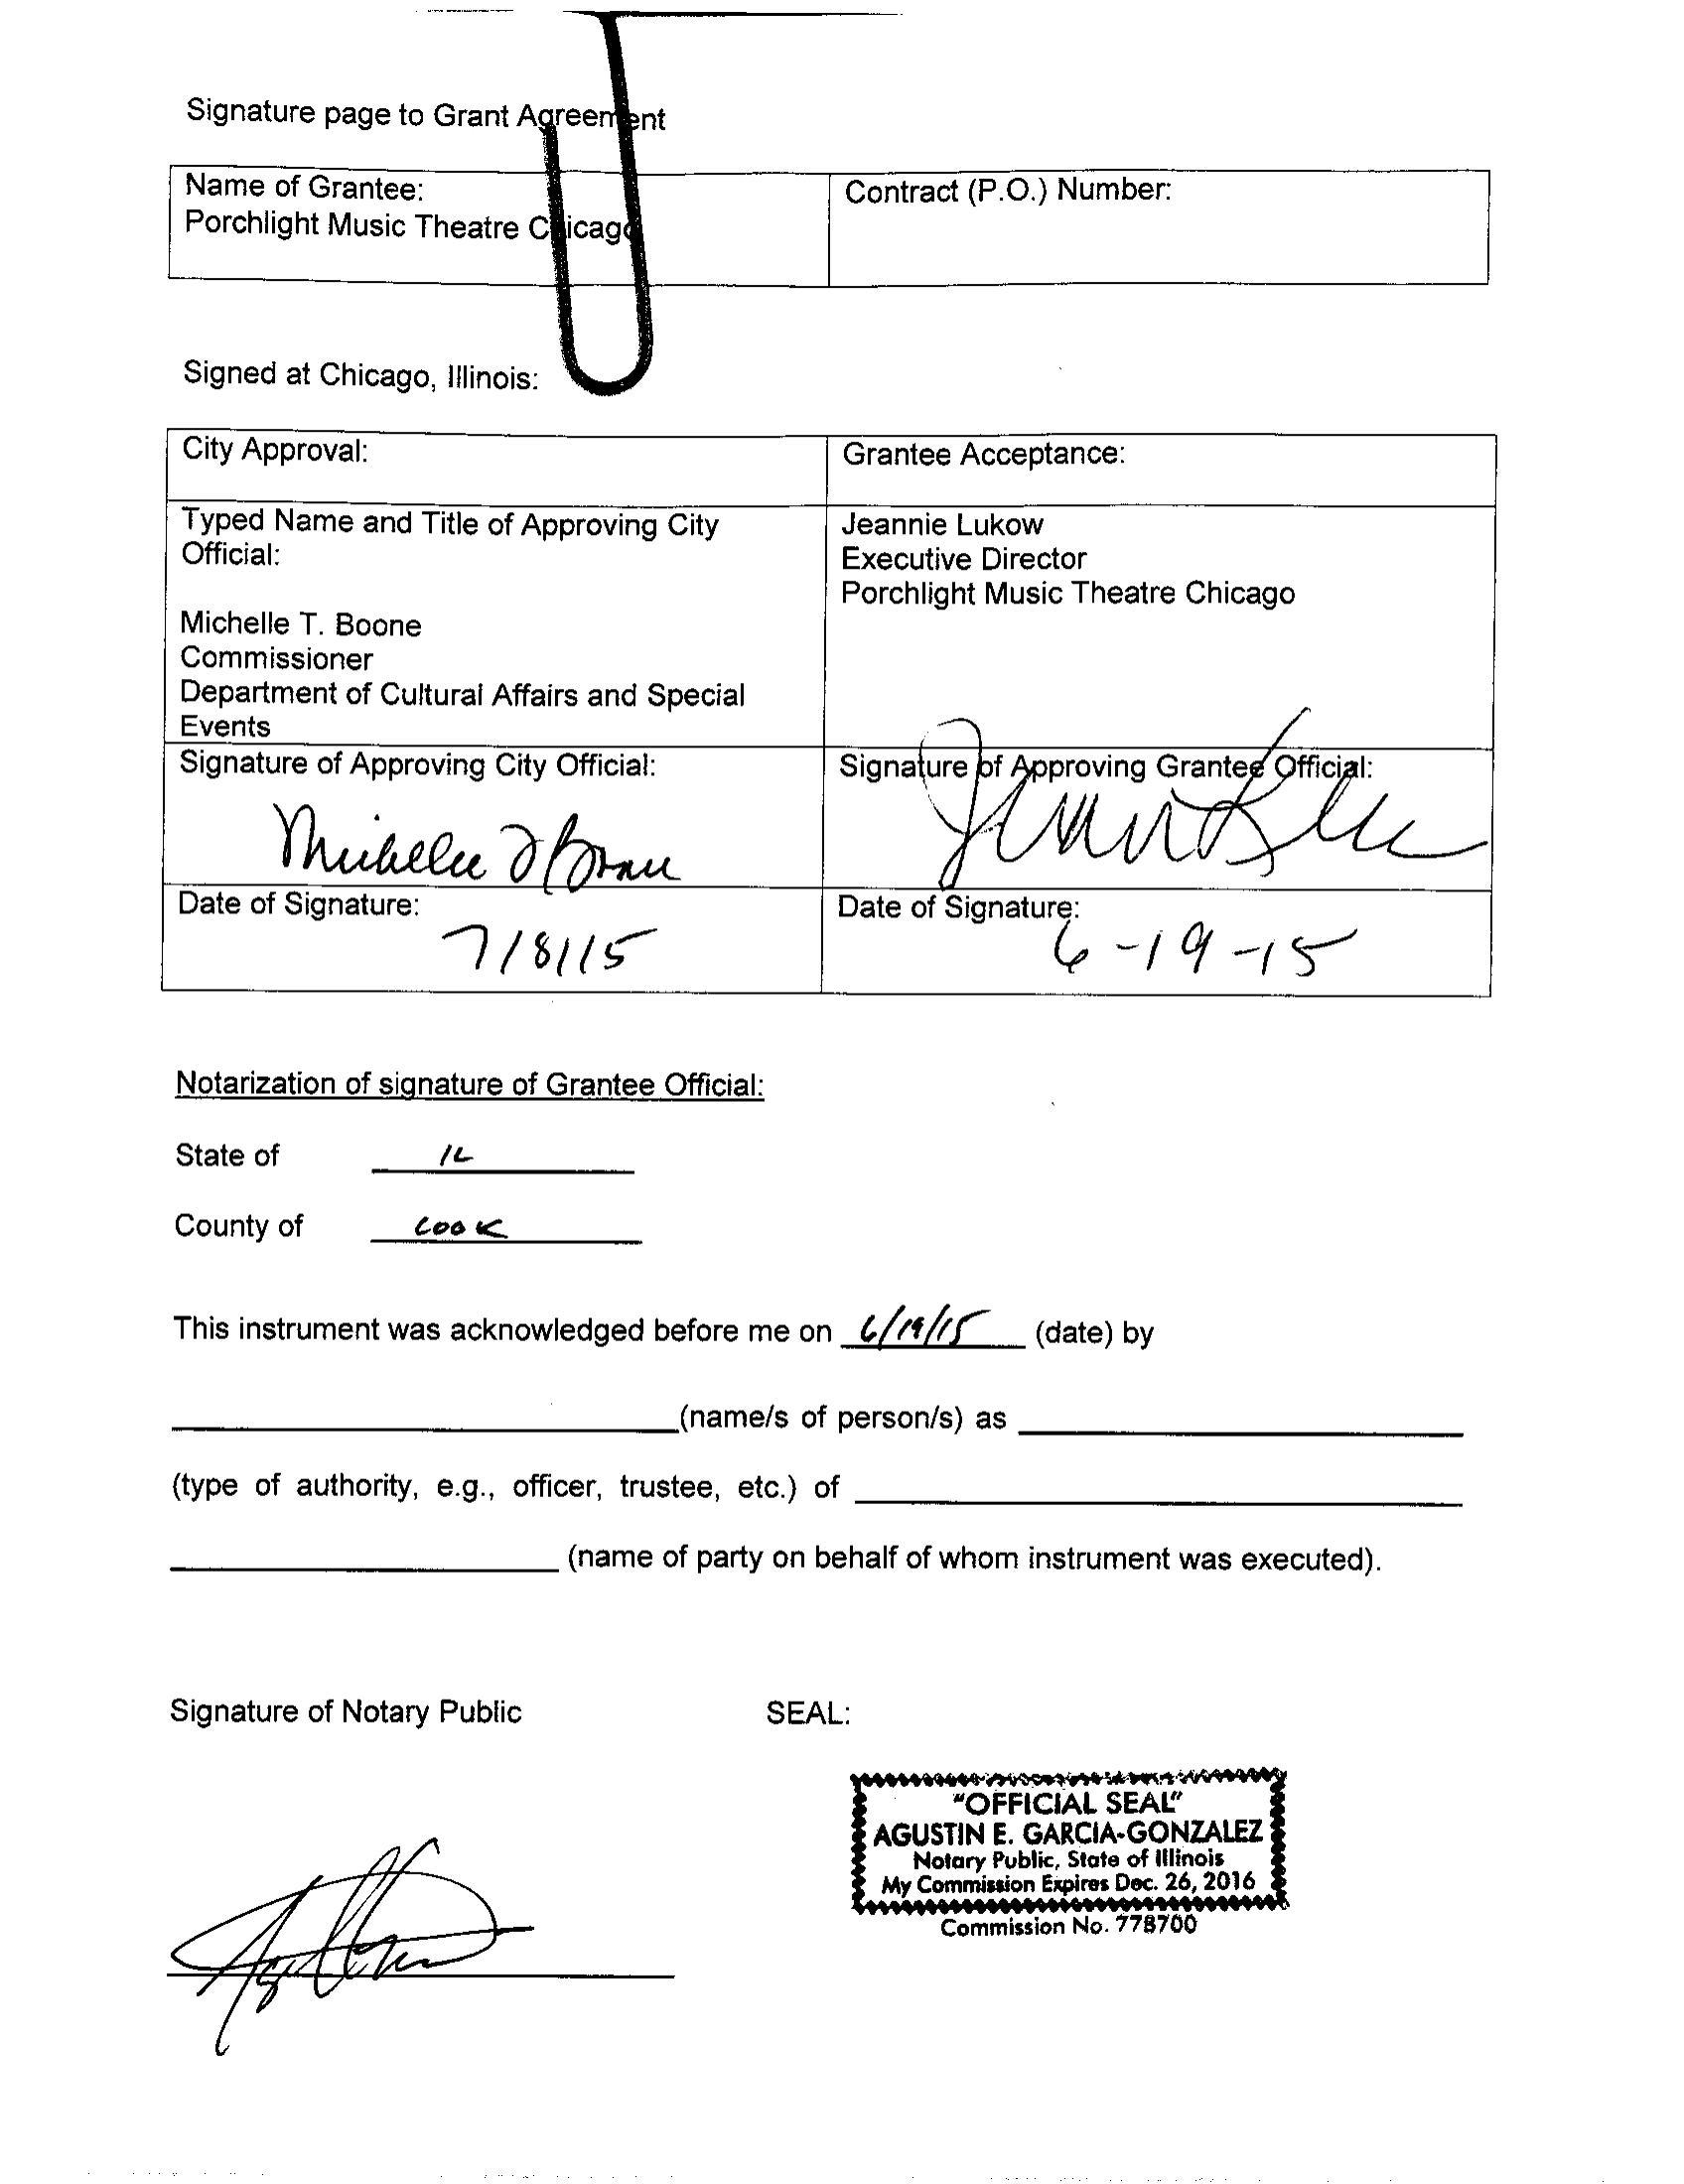 Signature page to Grant Agreement
Name of Grantee:
Porchlight Music Theatre Chicago
Contract (P.O.) Number:
Signed at Chicago, Illinois:
City Approval:
Grantee Acceptance:
Typed Name and Title of Approving City
Official:
Michelle T. Boone
Commissioner
Department of Cultural Affairs and Special
Events
Jeannie Lukow
Executive Director
Porchlight Music Theatre Chicago
Signature of Approving City Official:
Michelle T Boone
Signature of Approving Grantee Official:
Date of Signature:
7/8/15
Date of Signature:
6-19-15
Notarization of signature of Grantee Official:
State of IL
County of COOK
This instrument was acknowledged before me on 6/19/15 (date) by
(name/s of person/s) as
(type of authority, e.g., officer, trustee, etc.) of
(name of party on behalf of whom instrument was executed).
Signature of Notary Public
SEAL:
"OFFICIAL SEAL"
AGUSTIN E. GARCIA-GONZALEZ
Notary Public, State of Illinois
My Commission Expires Dec. 26, 2016
Commission No. 778700